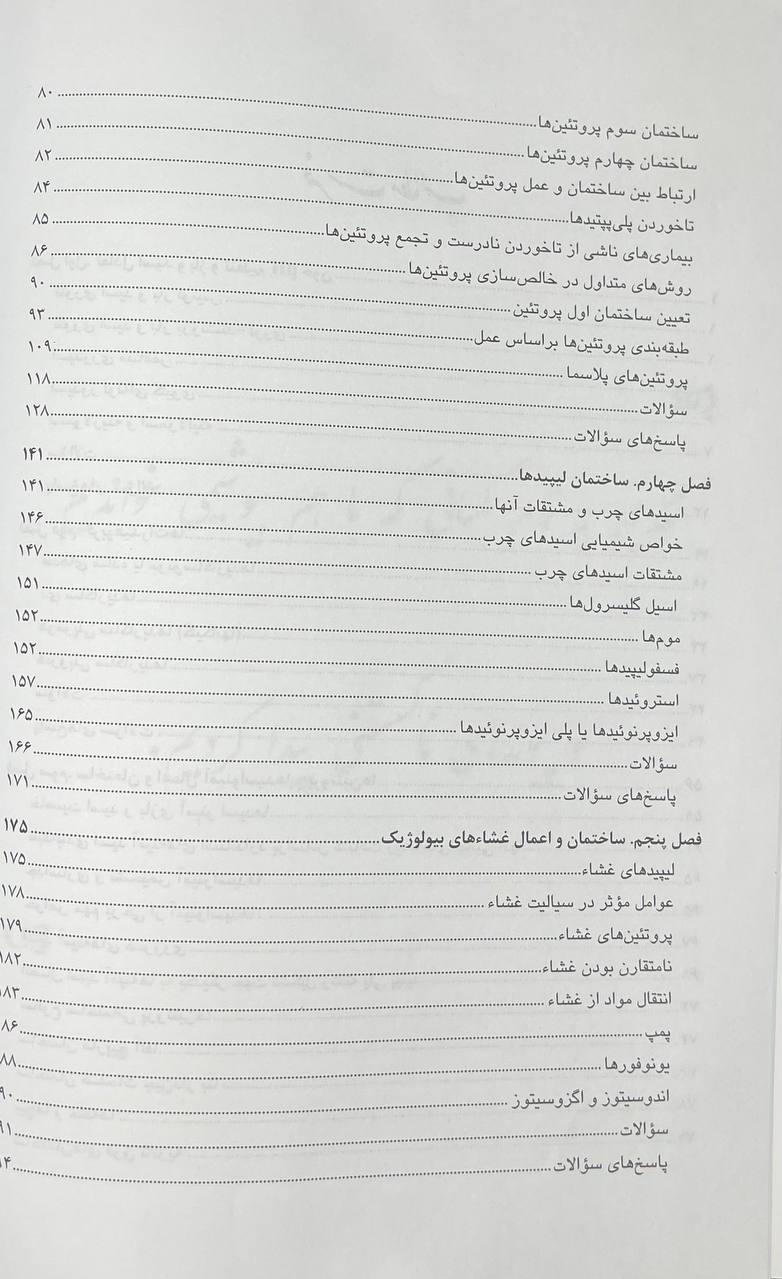 ساختمان سوم پروتئین‌ها ........ ۸۰
ساختمان چهارم پروتئین‌ها ........ ۸۱
ارتباط بین ساختمان و عمل پروتئین‌ها ........ ۸۲
تاخوردن پلی‌پپتیدها ........ ۸۴
بیماری‌های ناشی از تاخوردن نادرست و تجمع پروتئین‌ها ........ ۸۵
روش‌های متداول در خالص‌سازی پروتئین‌ها ........ ۸۶
تعیین ساختمان اول پروتئین ........ ۹۰
طبقه‌بندی پروتئین‌ها براساس عمل ........ ۹۳
پروتئین‌های پلاسما ........ ۱۰۹
سؤالات ........ ۱۱۸
پاسخ‌های سؤالات ........ ۱۲۸
فصل چهارم. ساختمان لیپیدها ........ ۱۴۱
اسیدهای چرب و مشتقات آنها ........ ۱۴۱
خواص شیمیایی اسیدهای چرب ........ ۱۴۶
مشتقات اسیدهای چرب ........ ۱۴۷
اسیل گلیسرول‌ها ........ ۱۵۱
موم‌ها ........ ۱۵۲
فسفولیپیدها ........ ۱۵۲
استروئیدها ........ ۱۵۷
ایزوپرنوئیدها یا پلی ایزوپرنوئیدها ........ ۱۶۵
سؤالات ........ ۱۶۶
پاسخ‌های سؤالات ........ ۱۷۱
فصل پنجم. ساختمان و اعمال غشاءهای بیولوژیک ........ ۱۷۵
لیپیدهای غشاء ........ ۱۷۵
عوامل مؤثر در سیالیت غشاء ........ ۱۷۸
پروتئین‌های غشاء ........ ۱۷۹
نامتقارن بودن غشاء ........ ۱۸۲
انتقال مواد از غشاء ........ ۱۸۳
پمپ ........ ۸۶
یونوفورها ........ ۸۸
اندوسیتوز و اگزوسیتوز ........ ۹۰
سؤالات ........ ۹۱
پاسخ‌های سؤالات ........